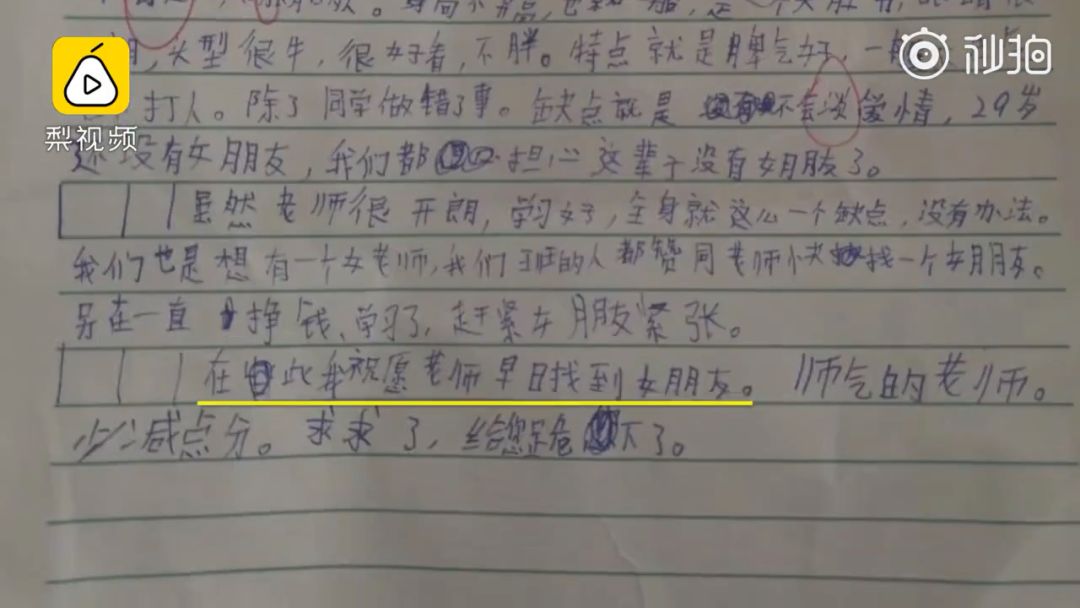 头型很牛，很好看，不胖。特点就是脾气好，一般
秒拍
梨视频
打人。除了同学做错了事。缺点就是不会谈爱情，29岁
还没有女朋友，我们都担心这辈子没有女朋友了。
虽然老师很开朗，学习好，全身就这么一个缺点，没有办法。
我们也是想有一个女老师，我们班的人都赞同老师快找一个女朋友。
另在一直挣钱、学习了，赶紧女朋友紧张。
在此我祝愿老师早日找到女朋友。师气的老师。
少减点分。求求了，给您跪下了。